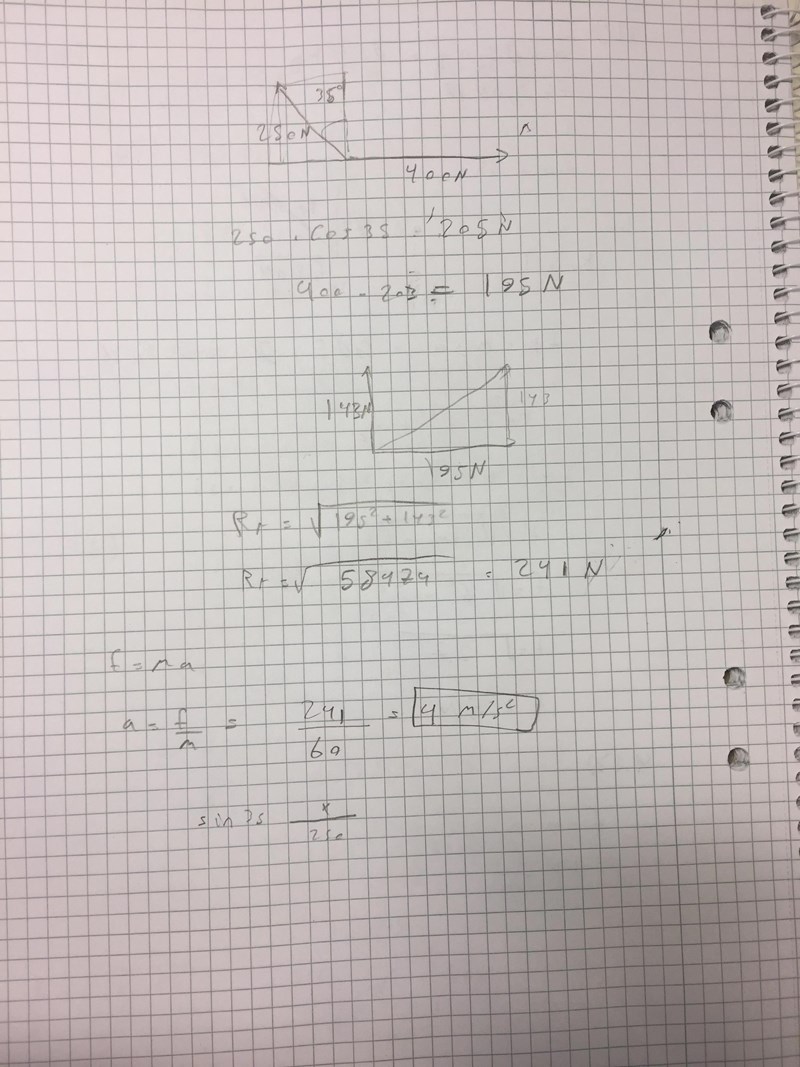 35°
250N
x
400N
250 . cos 35 = 205N
400 - 205 = 195N
143N
143
195N
Rr = √195² + 143²
Rr = √58474 = 241 N
F = ma
a = F/m = 241/60 = 4 m/s²
sin 35 x/250